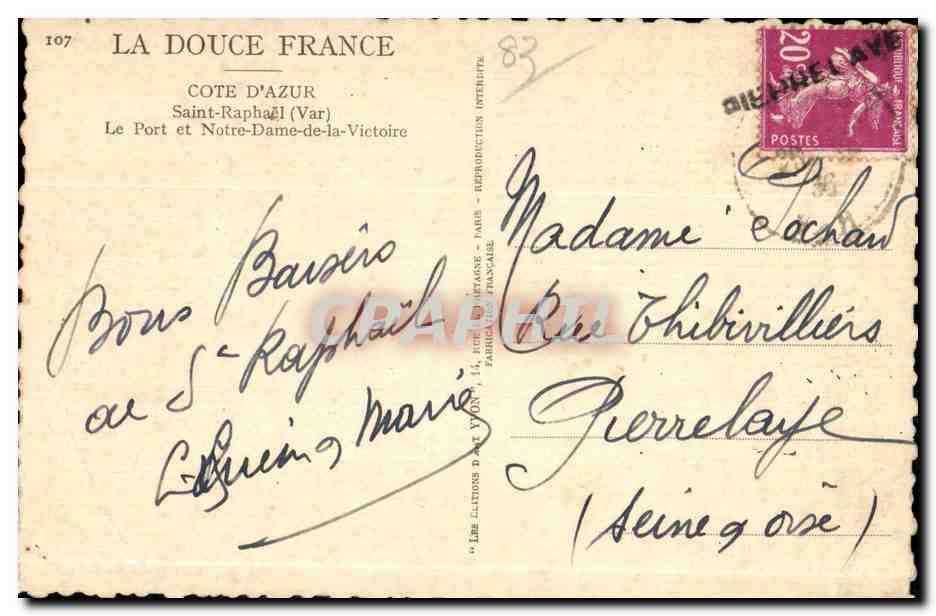 107
LA DOUCE FRANCE
COTE D'AZUR
Saint-Raphaël (Var)
Le Port et Notre-Dame-de-la-Victoire
83
20c
PIERRELAYE
RÉPUBLIQUE FRANÇAISE
POSTES
36
Bons Baisers
de St Raphaël
Marie
"LES ÉDITIONS D'ART YVON", 14, RUE BRETAGNE - PARIS - REPRODUCTION INTERDITE
FABRICATION FRANÇAISE
Madame Cochard
Rue Thibivilliers
Pierrelaye
(Seine & Oise)
CPAPHIL